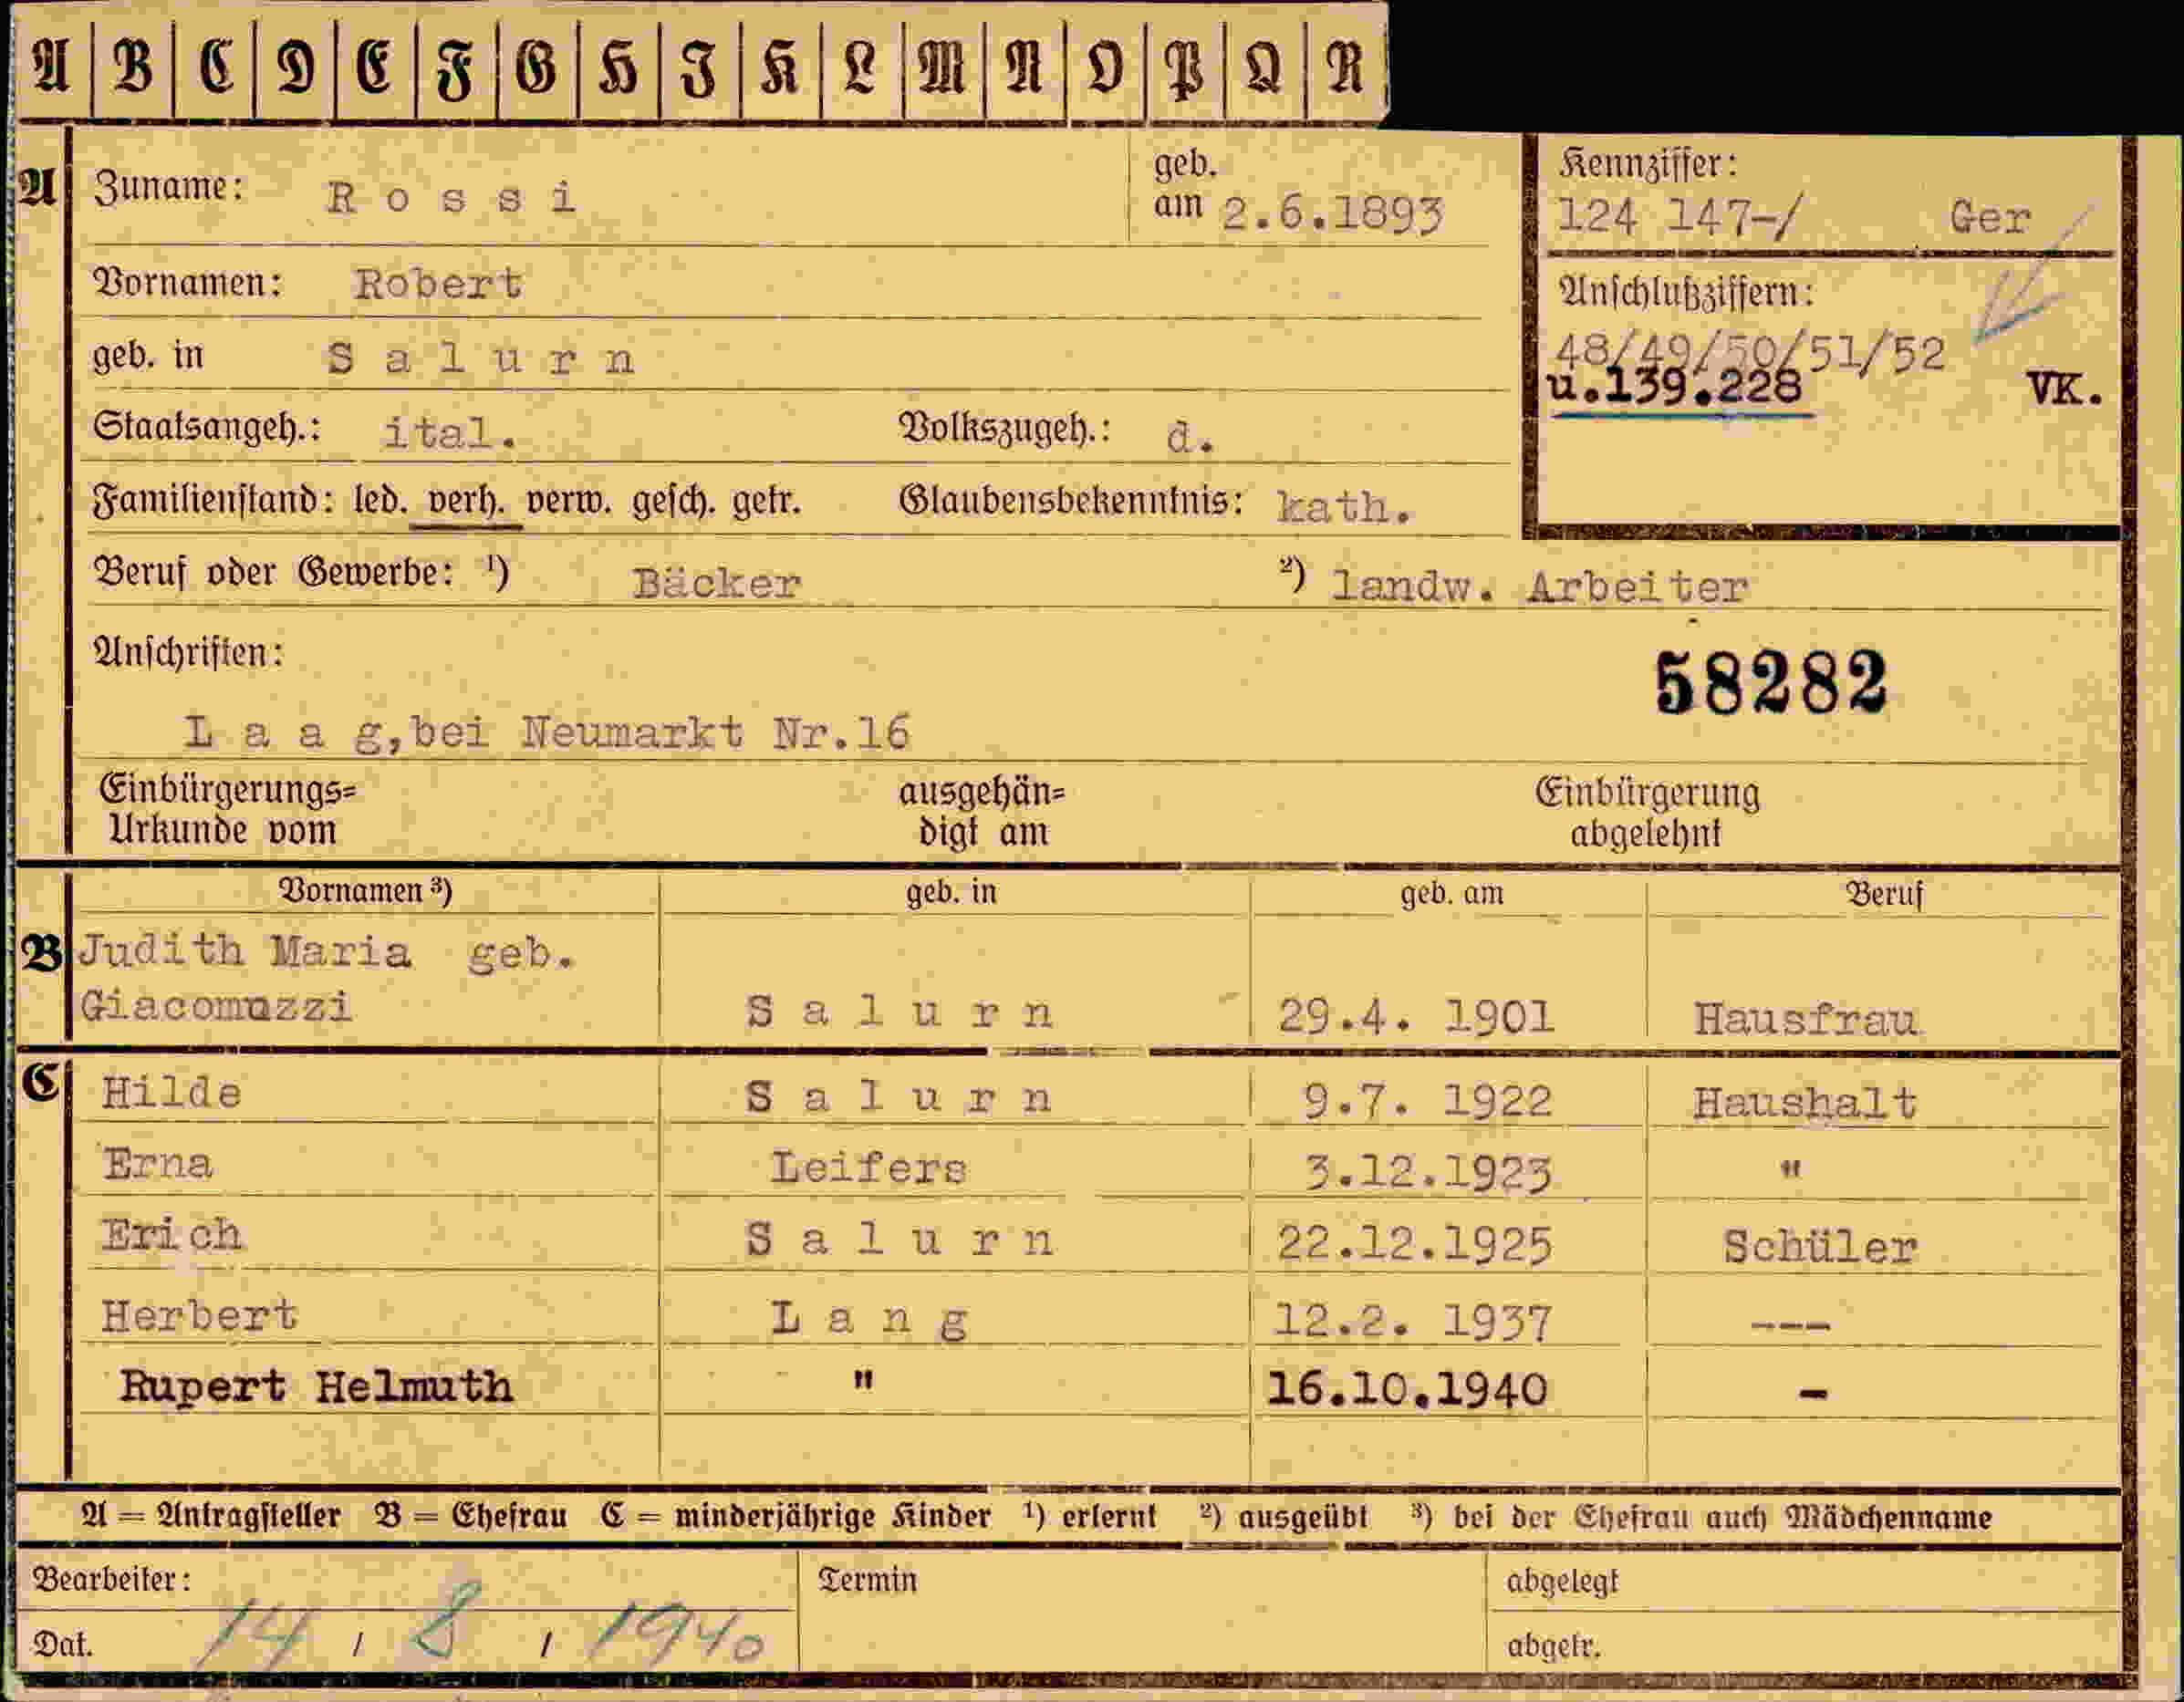 A B C D E F G H I K L M N O P Q R
A Zuname: R o s s i geb. am 2.6.1893
Kennziffer:
124 147-/ Ger
Vornamen: Robert
Anschlußziffern:
48/49/50/51/52
u.139.228 VK.
geb. in S a l u r n
Staatsangeh.: ital. Volkszugeh.: d.
Familienstand: led. verh. verw. gesch. getr. Glaubensbekenntnis: kath.
Beruf oder Gewerbe: ¹) Bäcker ²) landw. Arbeiter
Anschriften:
58282
L a a g,bei Neumarkt Nr.16
Einbürgerungs= ausgehän= Einbürgerung
Urkunde vom digt am abgelehnt
Vornamen ³) geb. in geb. am Beruf
B Judith Maria geb.
Giacomuzzi S a l u r n 29.4. 1901 Hausfrau
C Hilde S a l u r n 9.7. 1922 Haushalt
Erna Leifers 3.12.1923 "
Erich S a l u r n 22.12.1925 Schüler
Herbert L a n g 12.2. 1937 ---
Rupert Helmuth " 16.10.1940 -
A = Antragsteller B = Ehefrau C = minderjährige Kinder ¹) erlernt ²) ausgeübt ³) bei der Ehefrau auch Mädchenname
Bearbeiter: Termin abgelegt
Dat. 14 / 8 / 1940 abgetr.